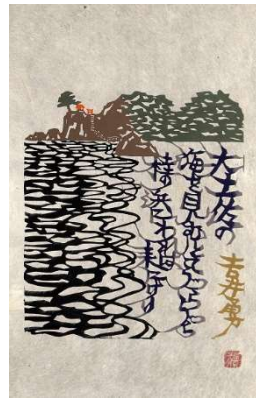 大土佐の
海を見むとてうつらうつら
桂の浜にわれは来にけり
吉井勇